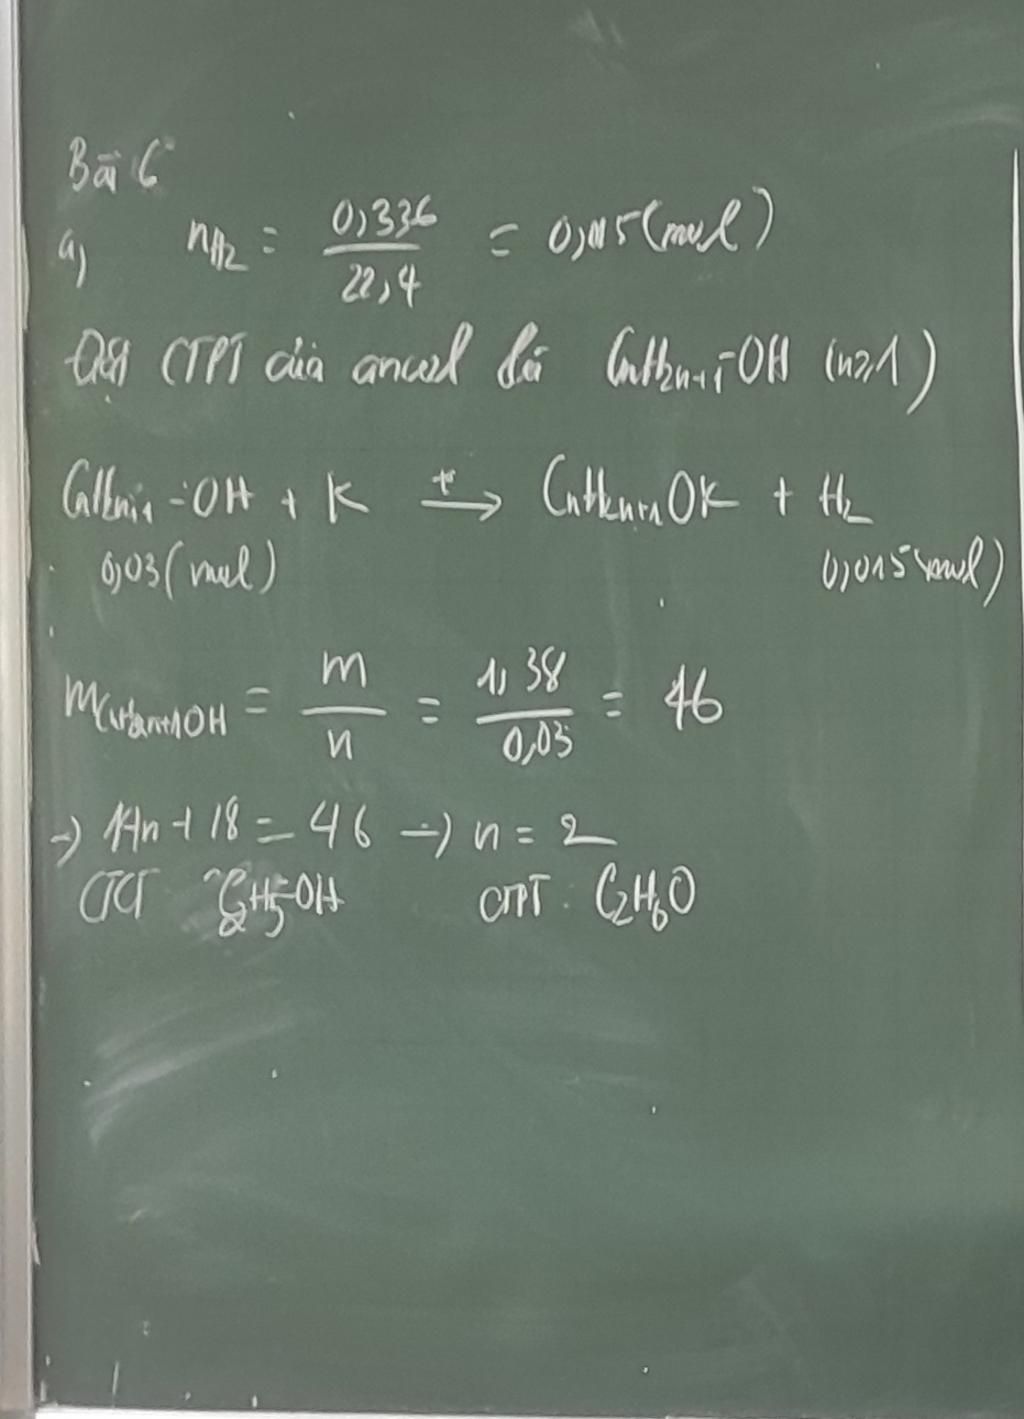 Bài 6
a) nH2 = 0,336 / 22,4 = 0,015 (mol)
Đặt CTPT của ancol là CnH2n+1-OH (n≥1)
CnH2n+1-OH + K t° → CnH2n+1OK + H2
0,03 (mol) 0,015 (mol)
MCnH2n+1OH = m / n = 1,38 / 0,03 = 46
→ 14n + 18 = 46 → n = 2
CTCT C2H5-OH CTPT : C2H6O